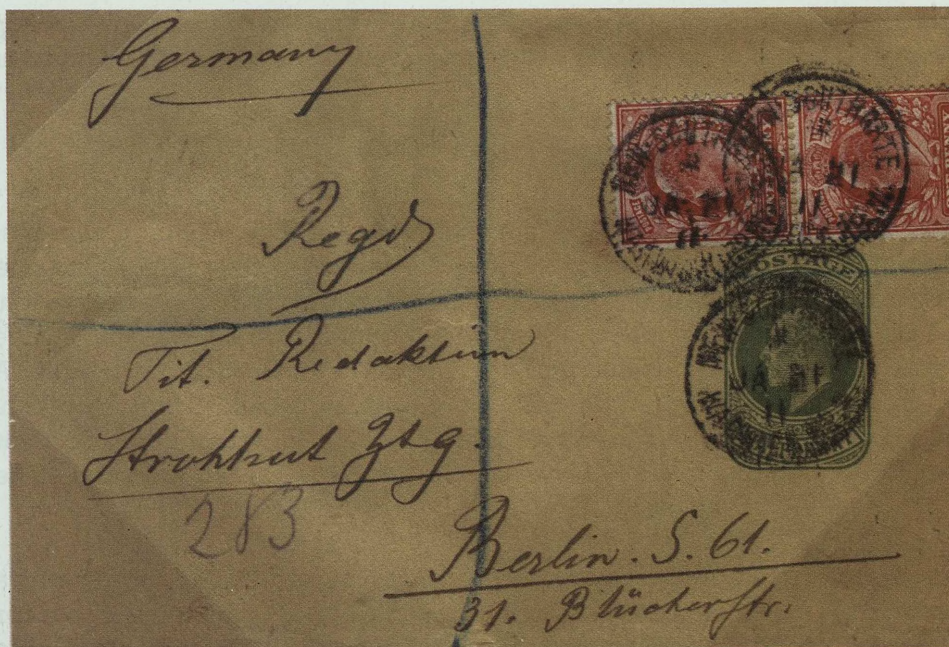 Germany
Regd
Tit. Redaktion
Strohhut Ztg.
283
Berlin. S. 61.
31. Blücherstr.
POSTAGE
JA 21
11
JA 21
11
JA 21
11